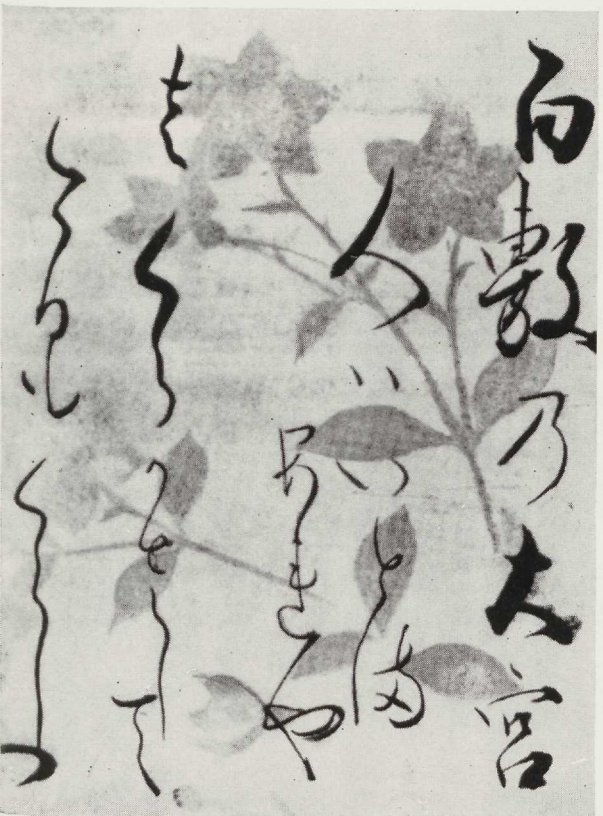 百敷乃大宮
人はいとま
あれや
さくらかさして
けふもくらしつ